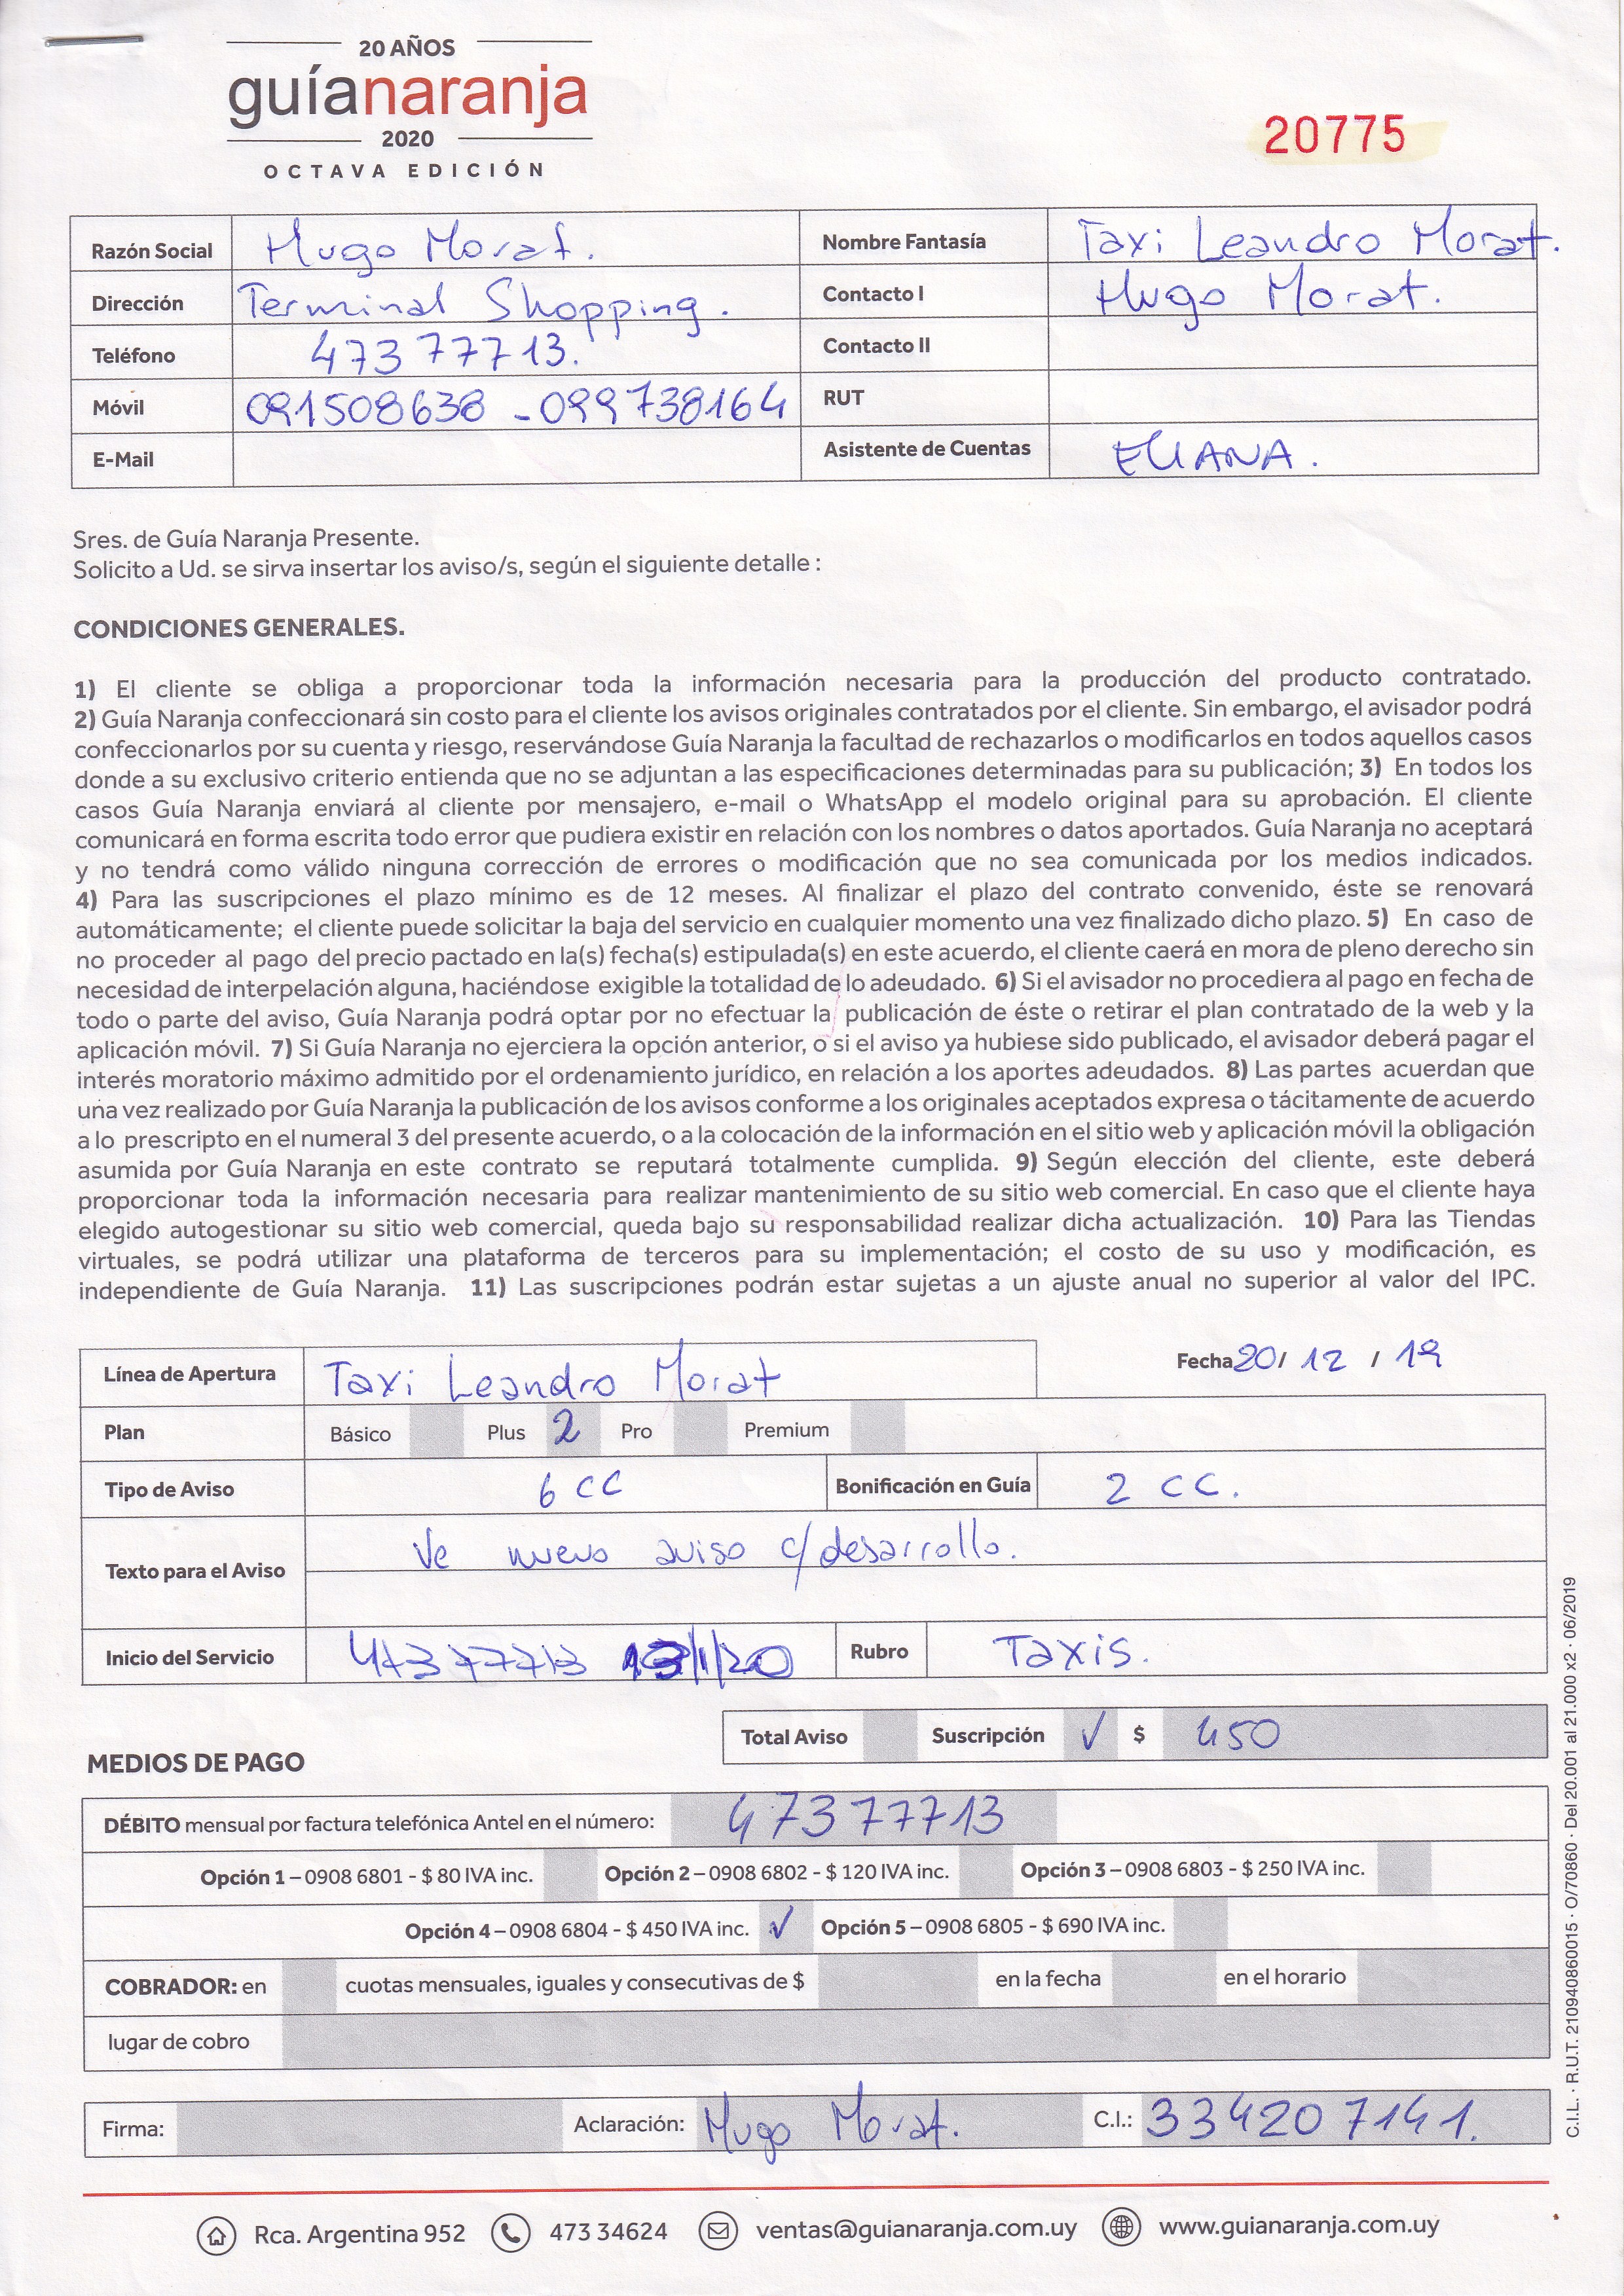 20 AÑOS
guíanaranja
2020
OCTAVA EDICIÓN
20775
Razón Social Hugo Morat. Nombre Fantasía Taxi Leandro Morat.
Dirección Terminal Shopping. Contacto I Hugo Morat.
Teléfono 473 77713. Contacto II
Móvil 091508638 - 099738164 RUT
E-Mail Asistente de Cuentas ELIANA.
Sres. de Guía Naranja Presente.
Solicito a Ud. se sirva insertar los aviso/s, según el siguiente detalle :
CONDICIONES GENERALES.
1) El cliente se obliga a proporcionar toda la información necesaria para la producción del producto contratado.
2) Guía Naranja confeccionará sin costo para el cliente los avisos originales contratados por el cliente. Sin embargo, el avisador podrá
confeccionarlos por su cuenta y riesgo, reservándose Guía Naranja la facultad de rechazarlos o modificarlos en todos aquellos casos
donde a su exclusivo criterio entienda que no se adjuntan a las especificaciones determinadas para su publicación; 3) En todos los
casos Guía Naranja enviará al cliente por mensajero, e-mail o WhatsApp el modelo original para su aprobación. El cliente
comunicará en forma escrita todo error que pudiera existir en relación con los nombres o datos aportados. Guía Naranja no aceptará
y no tendrá como válido ninguna corrección de errores o modificación que no sea comunicada por los medios indicados.
4) Para las suscripciones el plazo mínimo es de 12 meses. Al finalizar el plazo del contrato convenido, éste se renovará
automáticamente; el cliente puede solicitar la baja del servicio en cualquier momento una vez finalizado dicho plazo. 5) En caso de
no proceder al pago del precio pactado en la(s) fecha(s) estipulada(s) en este acuerdo, el cliente caerá en mora de pleno derecho sin
necesidad de interpelación alguna, haciéndose exigible la totalidad de lo adeudado. 6) Si el avisador no procediera al pago en fecha de
todo o parte del aviso, Guía Naranja podrá optar por no efectuar la publicación de éste o retirar el plan contratado de la web y la
aplicación móvil. 7) Si Guía Naranja no ejerciera la opción anterior, o si el aviso ya hubiese sido publicado, el avisador deberá pagar el
interés moratorio máximo admitido por el ordenamiento jurídico, en relación a los aportes adeudados. 8) Las partes acuerdan que
una vez realizado por Guía Naranja la publicación de los avisos conforme a los originales aceptados expresa o tácitamente de acuerdo
a lo prescripto en el numeral 3 del presente acuerdo, o a la colocación de la información en el sitio web y aplicación móvil la obligación
asumida por Guía Naranja en este contrato se reputará totalmente cumplida. 9) Según elección del cliente, este deberá
proporcionar toda la información necesaria para realizar mantenimiento de su sitio web comercial. En caso que el cliente haya
elegido autogestionar su sitio web comercial, queda bajo su responsabilidad realizar dicha actualización. 10) Para las Tiendas
virtuales, se podrá utilizar una plataforma de terceros para su implementación; el costo de su uso y modificación, es
independiente de Guía Naranja. 11) Las suscripciones podrán estar sujetas a un ajuste anual no superior al valor del IPC.
Línea de Apertura Taxi Leandro Morat Fecha 20/ 12 / 19
Plan Básico Plus 2 Pro Premium
Tipo de Aviso 6 CC Bonificación en Guía 2 CC.
Texto para el Aviso Ve nuevo aviso c/desarrollo.
Inicio del Servicio 47377713 /1/20 Rubro Taxis.
Total Aviso Suscripción ✓ $ 450
MEDIOS DE PAGO
DÉBITO mensual por factura telefónica Antel en el número: 47377713
Opción 1 – 0908 6801 - $ 80 IVA inc. Opción 2 – 0908 6802 - $ 120 IVA inc. Opción 3 – 0908 6803 - $ 250 IVA inc.
Opción 4 – 0908 6804 - $ 450 IVA inc. ✓ Opción 5 – 0908 6805 - $ 690 IVA inc.
COBRADOR: en cuotas mensuales, iguales y consecutivas de $ en la fecha en el horario
lugar de cobro
Firma: Aclaración: Hugo Morat. C.I.: 334207141.
Rca. Argentina 952 473 34624 ventas@guianaranja.com.uy www.guianaranja.com.uy
C.I.L. · R.U.T. 210940860015 · O/70860 · Del 20.001 al 21.000 x2 · 06/2019